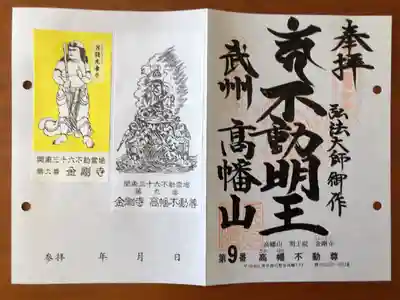 奉拝
弘法大師御作
不動明王
武州 高幡山
高幡山 明王院 金剛寺
第9番 高幡不動尊
関東三十六不動霊場
金剛寺
関東三十六不動霊場
第九番
金剛寺 高幡不動尊
参拝 年 月 日